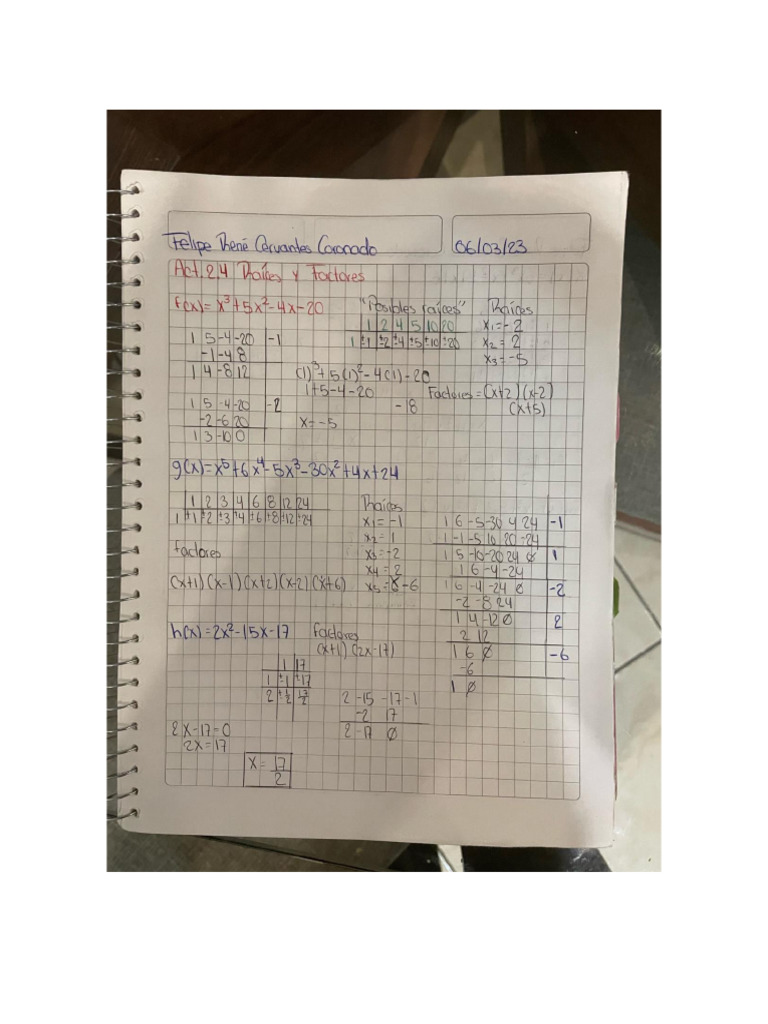 Felipe René Cervantes Coronado
06/03/23
Act. 2.4 Raíces y Factores
f(x)= x³+5x²-4x-20
"Posibles raíces"
1 2 4 5 10 20
1 ±1 ±2 ±4 ±5 ±10 ±20
Raíces
x₁=-2
x₂= 2
x₃=-5
1 5 -4 -20 -1
-1 -4 8
1 4 -8 12
(1)³+5(1)²-4(1)-20
1+5-4-20
-18
Factores = (x+2)(x-2)
(x+5)
1 5 -4 -20 -2
-2 -6 20
1 3 -10 0
x=-5
g(x)=x⁵+6x⁴-5x³-30x²+4x+24
1 2 3 4 6 8 12 24
1 ±1 ±2 ±3 ±4 ±6 ±8 ±12 ±24
Raíces
x₁= -1
x₂= 1
x₃= -2
x₄= 2
x₅= -6
factores
(x+1)(x-1)(x+2)(x-2)(x+6)
1 6 -5 -30 4 24 -1
-1 -5 10 20 -24
1 5 -10 -20 24 0 1
1 6 -4 -24
1 6 -4 -24 0 -2
-2 -8 24
1 4 -12 0 2
2 12
1 6 0 -6
-6
1 0
h(x)=2x²-15x-17
factores
(x+1)(2x-17)
1 17
1 ±1 ±17
2 ±1/2 ±17/2
2 -15 -17 -1
-2 17
2 -17 0
2x-17=0
2x=17
x= 17/2